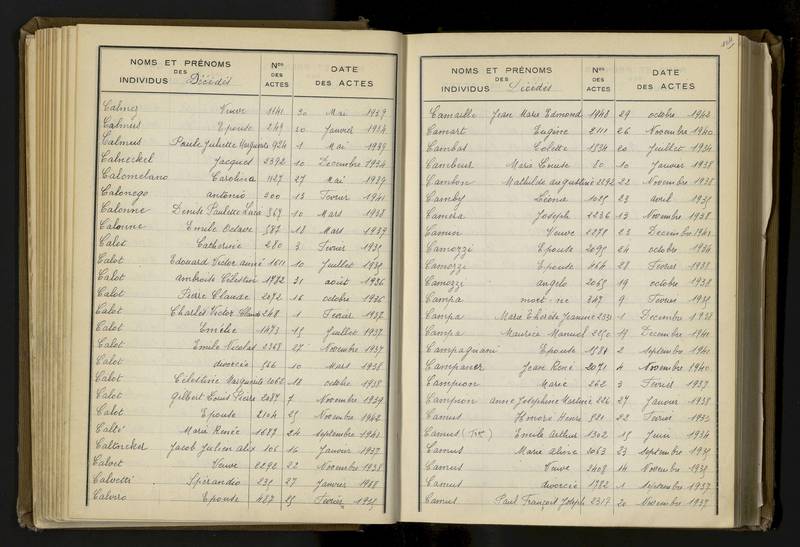 NOMS ET PRÉNOMS
DES
INDIVIDUS Décédés
Nos
DES
ACTES
DATE
DES ACTES
Veuve 1141 20 Mai 1929
Calmus Epouse 249 20 Janvier 1934
Calmus Paule Juliette Marguerite 924 1 Mai 1939
Calneckel Jacques 2392 10 Décembre 1934
Calomelano Carolina 1127 27 Mai 1939
Calonego antonio 200 13 Fevrier 1941
Calonne Denise Paulette 369 10 Mars 1938
Calonne Emile Octave 587 18 Mars 1937
Calot Catherine 280 3 Fevrier 1935
Calot Edouard Victor aimé 1611 10 Juillet 1935
Calot ambroise Célestin 1782 31 août 1936
Calot Pierre Claude 2072 16 octobre 1936
Calot Charles Victor 248 1 Fevrier 1937
Calot Emélie 1473 15 Juillet 1937
Calot Emile Nicolas 2368 27 Novembre 1937
Calot divorcée 566 10 Mars 1938
Calot Célestine Marguerite 2062 18 octobre 1938
Calot Gilbert Louis Pierre 2087 7 Novembre 1939
Calot Epouse 2104 25 Novembre 1942
Calté Marie Renée 1687 24 septembre 1941
Jacob Julien alix 106 16 Janvier 1937
Veuve 2292 22 Novembre 1938
Calvetti Spérandio 235 27 Janvier
Calviro Epouse 487 25 Fevrier 1935
NOMS ET PRÉNOMS
DES
INDIVIDUS Décédés
Nos
DES
ACTES
DATE
DES ACTES
Camaille Jean Marie Edmond 1948 29 octobre 1942
Camart Eugène 2111 26 Novembre 1940
Cambas Colette 1534 20 Juillet 1934
Cambeur Marie Louise 80 10 Janvier 1938
Cambon Mathilde augustine 2292 22 Novembre 1938
Camby Léona 1025 23 avril 1935
Camera Joseph 2236 13 Novembre 1938
Camin Veuve 2278 23 Decembre 1941
Camozzi Epouse 2095 24 octobre 1934
Camozzi Epouse 464 28 Fevrier 1938
Camozzi angelo 2065 19 octobre 1938
Campa mort-né 347 9 Fevrier 1935
Campa Marie Thérèse Jeannine 2331 1 Decembre 1938
Campa Maurice Manuel 2250 19 Decembre 1941
Campagnani Epouse 1581 2 septembre 1941
Campaner Jean René 2071 4 Novembre 1940
Campion Marie 262 3 Fevrier 1937
Campion anne Joséphine 226 27 Janvier 1938
Camus Honoré Henri 521 22 Fevrier 1935
Camus Emile Arthur 1302 15 Juin 1934
Camus Marie aline 2063 23 septembre 1935
Camus Veuve 2408 14 Novembre 1935
Camus divorcée 1782 1 septembre 1937
Camus Paul François Joseph 2317 20 Novembre 1937